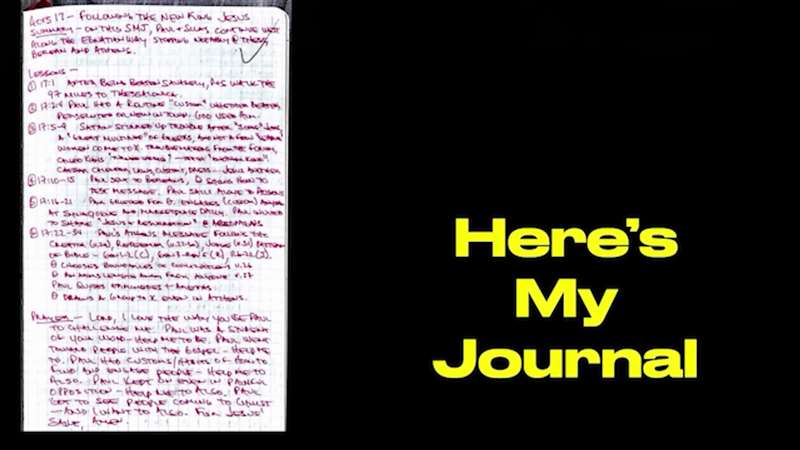 ACTS 17 - FOLLOWING THE NEW KING JESUS
SUMMARY - ON THIS SMJ, PAUL + SILAS CONTINUE WEST
ALONG THE EGNATIAN WAY STOPPING NOTABLY @ THESS,
BEREAN AND ATHENS.
LESSONS -
① 17:1 AFTER BEING BEATEN SAVAGELY, P+S WALK THE
97 MILES TO THESSALONICA.
② 17:2-4 PAUL HAD A ROUTINE "CUSTOM" WHETHER BEATEN
PERSECUTED OR NEW IN TOWN, GOD USED
③ 17:5-9 SATAN STIRRED UP TROUBLE AFTER "SOME" JEWS,
A "GREAT MULTITUDE" OF GREEKS, AND NOT A FEW
WOMEN COME TO X. FROM THE
④ 17:10-15 PAUL SENT TO BEREANS, HOW TO
TEST MESSAGE. PAUL SAILS ALONE TO ATHENS
⑤ 17:16-21 PAUL (CUSTOM)
AT SYNAGOGUE AND MARKETPLACE DAILY. PAUL INVITED
TO SHARE "JESUS + RESURRECTION" @ AREOPAGUS
⑥ 17:22-34 PAUL'S ATHENS MESSAGE FOLLOWS THE
CREATOR (v.24), REDEEMER, JUDGE (v.31) PATTERN
OF BIBLE - GEN 1-2 (C),
CHOOSES BOUNDARIES OF v.26
FROM ANYONE v.27
PAUL QUOTES EPIMENIDES + ARATUS
DRAWS A GROUP TO X EVEN IN ATHENS.
PRAYER - LORD, I LOVE THE WAY YOU USE PAUL
TO CHALLENGE ME. PAUL WAS A STUDENT
OF YOUR WORD - HELP ME TO BE. PAUL WENT
TOWARD PEOPLE WITH THE GOSPEL - HELP ME
TO. PAUL HAD CUSTOMS/HABITS OF HOW TO
FIND AND ENGAGE PEOPLE - HELP ME TO
ALSO. PAUL KEPT ON EVEN IN PAINFUL
OPPOSITION - HELP ME TO ALSO. PAUL
GOT TO SEE PEOPLE COMING TO CHRIST
- AND I WANT TO ALSO. FOR JESUS'
SAKE, AMEN.
Here's
My
Journal